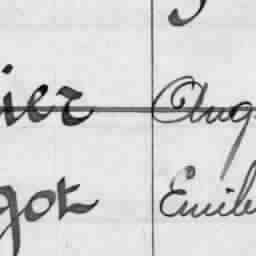 ier Aug
got Emil